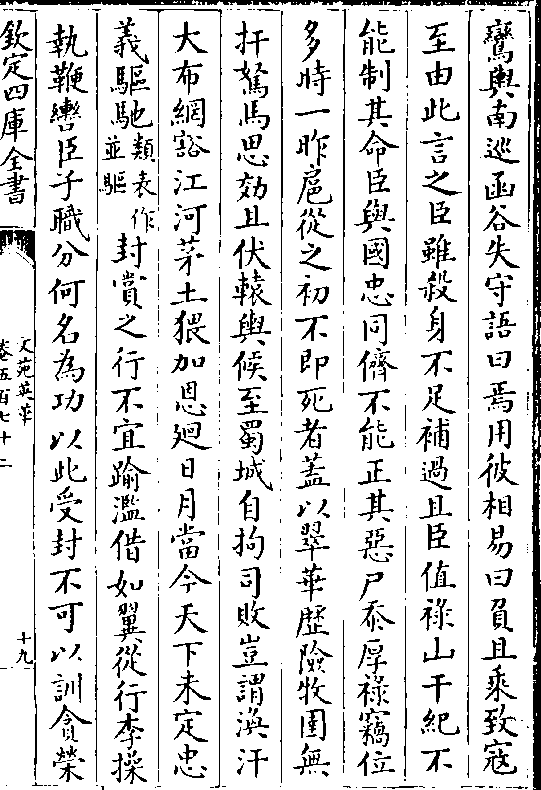 鸞輿南巡函谷失守語曰焉用彼相易曰負且乘致寇
至由此言之臣雖殺身不足補過且臣值祿山干紀不
能制其命臣與國忠同儕不能正其惡尸忝厚祿竊位
多時一昨扈從之初不即死者蓋以翠華歷險牧圉無
扞駑馬思効且伏轅輿候至蜀城自拘司敗豈謂渙汗
大布網豁江河茅土猥加恩廻日月當今天下未定忠
義驅馳類表作並驅封賞之行不宜踰濫借如翼從行李操
執鞭轡臣子職分何名為功以此受封不可以訓貪榮
欽定四庫全書
文苑英華
卷五百七十二
十九